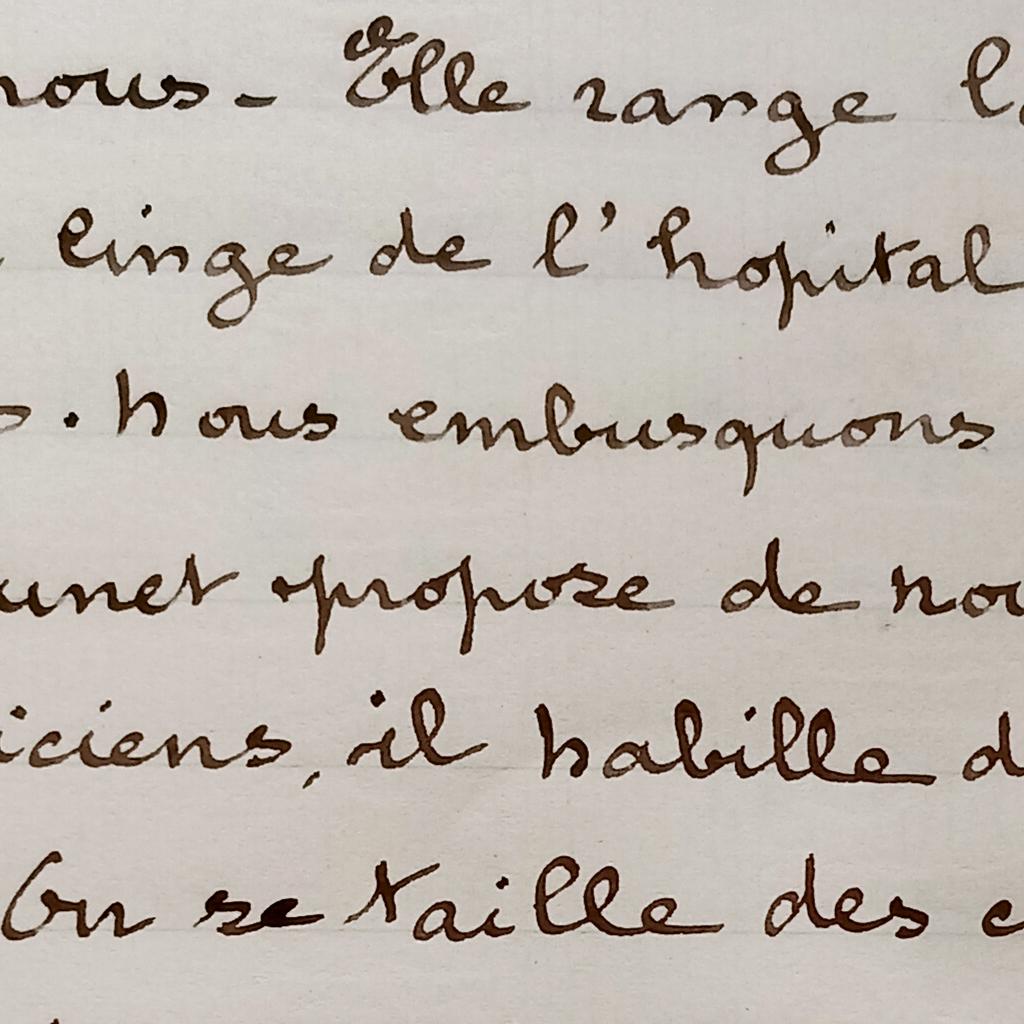 nous - Elle range l
linge de l'hopital
. Nous embusquons
unet propose de nou
iciens, il habille d
On se taille des c